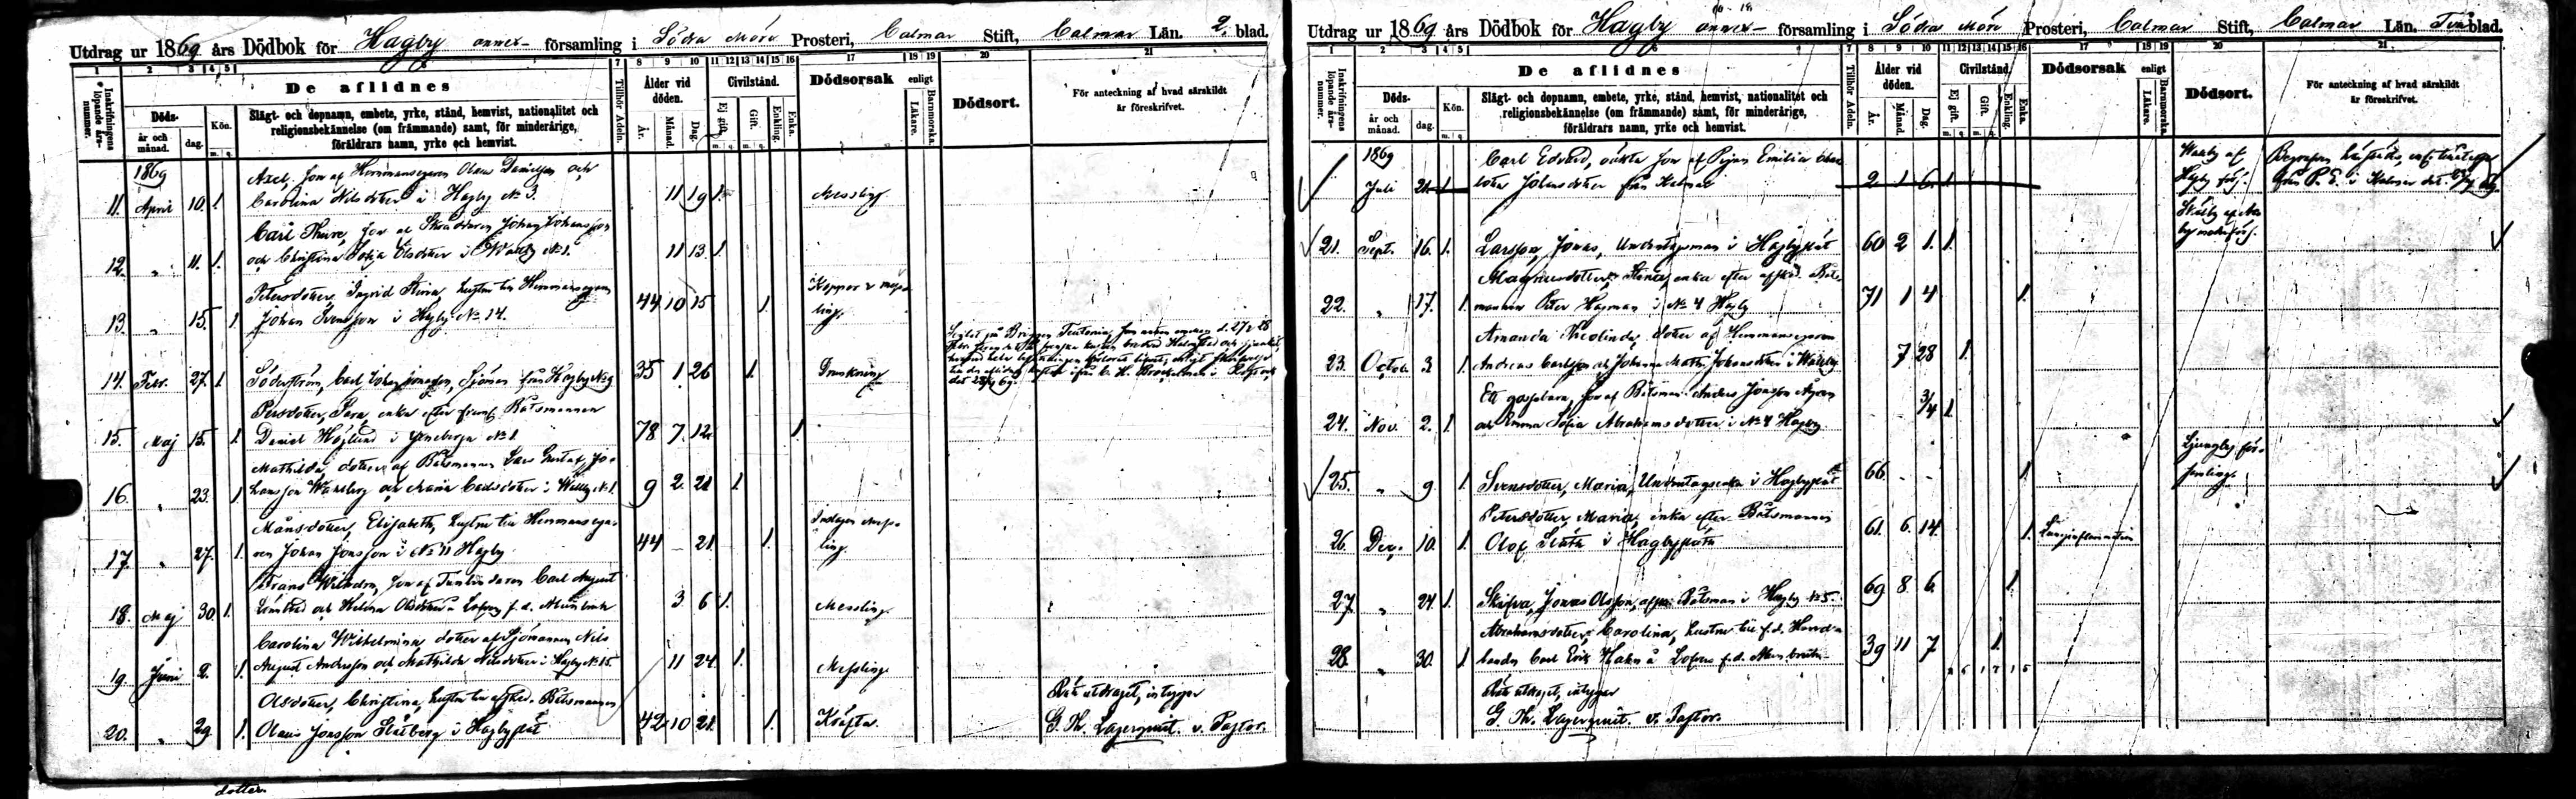 Utdrag ur 1869 års Dödbok för Hagby annex- församling i Södra Möre Prosteri, Calmar Stift, Calmar Län. 2. blad.
1 2 3 4 5 6 7 8 9 10 11 12 13 14 15 16 17 18 19 20 21
Inskrifningens löpande års-nummer.
Döds-
år och månad.
dag.
Kön.
m. q.
De aflidnes
Slägt- och dopnamn, embete, yrke, stånd, hemvist, nationalitet och
religionsbekännelse (om främmande) samt, för minderårige,
föräldrars namn, yrke och hemvist.
Tillhör Adeln.
Ålder vid döden.
År. Månad. Dag.
Civilstånd.
Ej gift. Gift. Enkling. Enka.
m. q. m. q.
Dödsorsak
enligt
Läkare. Barnmorska.
Dödsort.
För anteckning af hvad särskildt
är föreskrifvet.
1869
Axel, son af Hemmansegaren Olaus Danielsson och
11. April 10. 1. Carolina Nilsdotter i Hagby No 3. 11 19 1. Messling
Carl Thure, son af Skräddaren Johan Johansson
12. " 11. 1. och Christina Sofia Olsdotter i Wallby No 1. 11 13 1.
Petersdotter, Ingrid Stina, hustru till Hemmansegaren
13. " 15. 1. Johan Svensson i Hagby No 14. 44 10 15 1. Koppor & mess-
ling.
14. Febr. 27. 1 Söderström, Carl Johan Jonasson, Sjöman från Hagby No 9 35 1 26 1. Drunkning
Persdotter, Sara, enka efter Båtsmannen
15. Maj 15. 1. Daniel Höglund i No 1. 78 7. 12. 1.
Mathilda, dotter af Båtsmannen Lars Gustaf Jo-
16. " 23. 1 hansson Wallberg och Maria Carlsdotter i Wallby No 1. 9 2. 21 1
Månsdotter, Elisabeth, hustru till Hemmansega-
17. " 27. 1. ren Johan Jonsson i No 11 Hagby 44 - 21. 1. Inslagen mess-
ling.
Frans Wilhelm, son af Carl August
18. Maj 30. 1. och Helena Olsdotter å f. d. 3. 6 1. Messling
Carolina Wilhelmina dotter af Sjömannen Nils
19. Juni 2. 1. August Andersson och Mathilda Nilsdotter i Hagby No 15. 11 24. 1. Messling
Olsdotter, Christina, hustru till afsked. Båtsmannen
20. " 29. 1. Olaus Jonsson Slätberg i Hagbyslät 42 10 21. 1. Kräfta.
Rätt utdraget, intygar
G. Th. Lagerqvist. v. Pastor.
dotter.
Utdrag ur 1869 års Dödbok för Hagby annex- församling i Södra Möre Prosteri, Calmar Stift, Calmar Län. Två blad.
1 2 3 4 5 6 7 8 9 10 11 12 13 14 15 16 17 18 19 20 21
Inskrifningens löpande års-nummer.
Döds-
år och månad.
dag.
Kön.
m. q.
De aflidnes
Slägt- och dopnamn, embete, yrke, stånd, hemvist, nationalitet och
religionsbekännelse (om främmande) samt, för minderårige,
föräldrars namn, yrke och hemvist.
Tillhör Adeln.
Ålder vid döden.
År. Månad. Dag.
Civilstånd.
Ej gift. Gift. Enkling. Enka.
m. q. m. q.
Dödsorsak
enligt
Läkare. Barnmorska.
Dödsort.
För anteckning af hvad särskildt
är föreskrifvet.
1869
Carl Edvard, oäkta son af Pigan Emilia Char-
Juli 21. 1 lotta Johansdotter från Kalmar 2 1 6 1 Wassby af
Hagby förs.
21. Sept. 16. 1. Larsson, Jonas, Undantagsman i Hagbyslät 60 2 1. 1.
Magnusdotter, Stina, enka efter afsked. Båts-
22. " 17. 1. mannen Peter Hagman i No 4 Hagby 71 1 4 1.
Amanda Theolinda, dotter af Hemmansegaren
23. Octob. 3. 1. Andreas Carlsson och Johanna Math. Johansdotter i Wallby 7 28 1.
Ett gossebarn, son af Båtsman Anders Jonsson
24. Nov. 2. 1. och Emma Sofia Abrahamsdotter i No 4 Hagby 3/4 1.
25. " 9. 1. Svensdotter, Maria, Undantagsenka i Hagbyslät 66. 1. Ljungby för-
samling.
Petersdotter, Maria, enka efter Båtsmannen
26. Dec. 10. 1. Olof i Hagbyslätt 61. 6. 14. 1. Lunginflammation
27. " 24. 1. Skifva, Jonas Olsson, afsk. Båtsman i Hagby No 5. 69 8 6. 1.
Abrahamsdotter, Carolina, hustru till f. d.
28. " 30. 1 Carl Erik Hahn å f. d. 39 11 7 1.
Rätt utdraget, intygar
G. Th. Lagerqvist. v. Pastor.